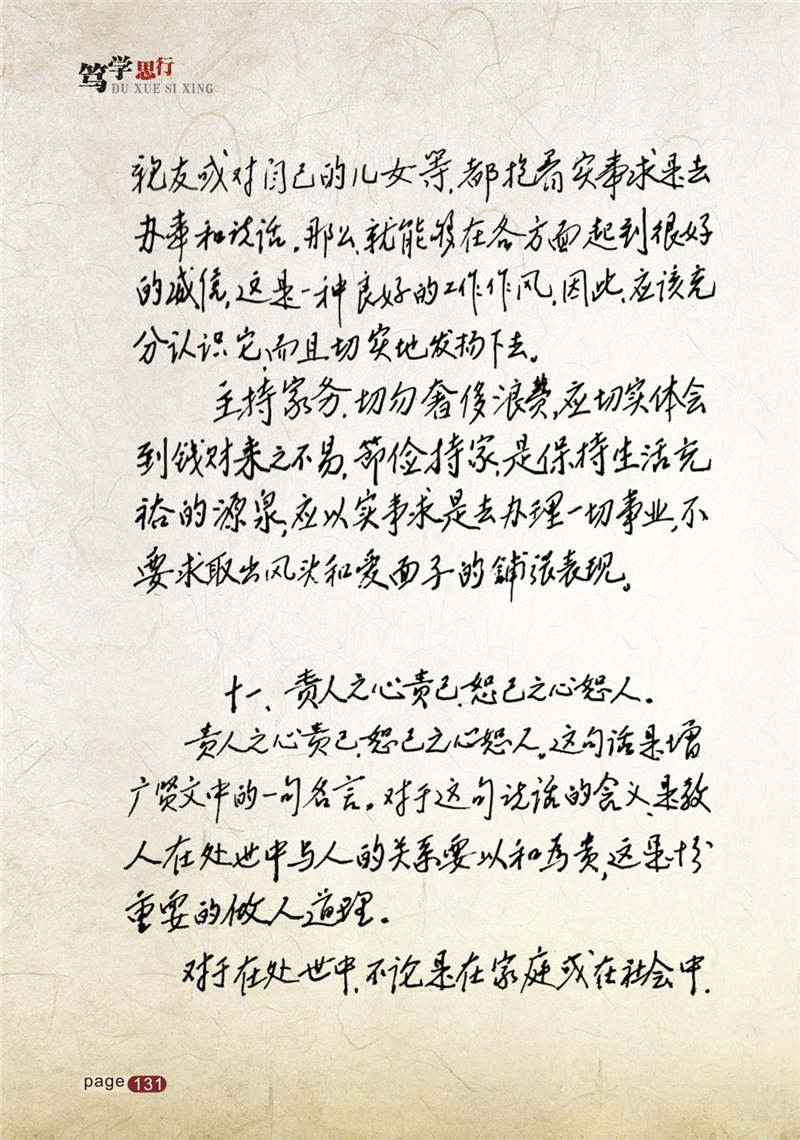 笃学思行
DU XUE SI XING
亲友或对自己的儿女等,都抱着实事求是去
办事和说话。那么,就能够在各方面起到很好
的诚信,这是一种良好的工作作风,因此,应该充
分认识它,而且切实地发扬下去。
主持家务,切勿奢侈浪费,应切实体会
到钱财来之不易,节俭持家,是保持生活充
裕的源泉,应以实事求是去办理一切事业,不
要求取出风头和爱面子的鋪張表现。
十一、责人之心责己,恕己之心恕人。
责人之心责己,恕己之心恕人。这句话是增
广贤文中的一句名言。对于这句说话的含义,是教
人在处世中与人的关系要以和為贵,这是十分
重要的做人道理。
对于在处世中,不论是在家庭或在社会中,
page 131